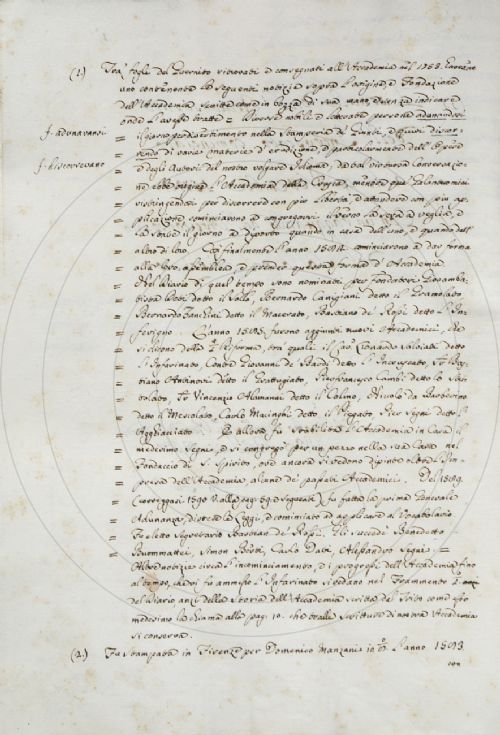 (1.) Tra' fogli del Guernito ritrovati e consegnati all'Accademia nel 1788.
uno contenente le seguenti notizie sopra l'origine, e Fondazione
dell'Accademia scritte come in bozza di sua mano, e senza indicare
onde l'avesse tratte = Diverse nobili e letterate persone adunandosi
f. adunavansi
= il giorno per divertimento nella Stamperia de' Giunti, e quivi discor-
f. discorrevano
= rendo di varie materie d'erudizione, e particolarmente dell'Opere
= e degli Autori del nostro volgare Idioma, da tal virtuosa Conversazio-
= ne ebbe origine l'Accademia della Crusca, mentre que' Galantuomini
= ristringendosi per discorrere con più libertà, e attendere con più ap-
= plicazione, cominciarono a congregarsi l'Inverno la sera a veglia, e
= la State il giorno a diporto quando in casa dell'uno, e quando dell'
= altro di loro. Così finalmente l'anno 1584. cominciarono a dar forma
= alla loro assemblea, e prendere forma d'Accademia.
= Nel Diario di quel tempo sono nominati per fondatori Giovamba-
= tista Deti detto il Sollo, Bernardo Canigiani detto il Gramolato
= Bernardo Zanchini detto il Macerato, Bastiano de' Rossi detto l'In-
= ferigno. L'anno 1585. furono aggiunti nuovi Accademici, che
= si dicono della Riforma, tra quali il Cav. Lionardo Salviati detto
= l'Infarinato, Conte Giovanni de' Bardi detto l'Incruciato,
= Antinori detto il Grattugiato, Pierfrancesco Cambi detto lo Stri-
= tolato, Vincenzio Alamanni detto il Colino, Niccolò da Barberino
= detto il Mescolato, Carlo Macinghi detto il Piegato, Pier Segni detto l'
= Agghiacciato. E allora fu stabilita l'Accademia in Casa il
= medesimo Segni, e si congregò per un pezzo nella sua Casa nel
= Fondaccio di S. Spirito, ove ancora si vedono dipinte oltre l'Im-
= presa dell'Accademia alcune de' passati Accademici. Del 1589.
(correggasi 1590. v. alla pag. 59. e seguenti) fu fatta la prima Generale
= Adunanza, distese le Leggi, e cominciato ad applicare al Vocabolario
= Fu eletto Segretario Bastiano de' Rossi. Gli succedé Benedetto
= Buommattei, Simon Berti, Carlo Dati, Alessandro Segni =
= Altre notizie circa l'incominciamento, e i progressi dell'Accademia fino
al tempo, che vi fu ammesso l'Infarinato si vedano nel Frammento
del Diario anzi della Storia dell'Accademia scritta dal Trito come esso
medesimo la chiama alla pag. 10. che tralle Scritture di nostra Accademia
si conserva.
(2.) Fu stampata in Firenze per Domenico Manzani in 8.° l'anno 1583.
con